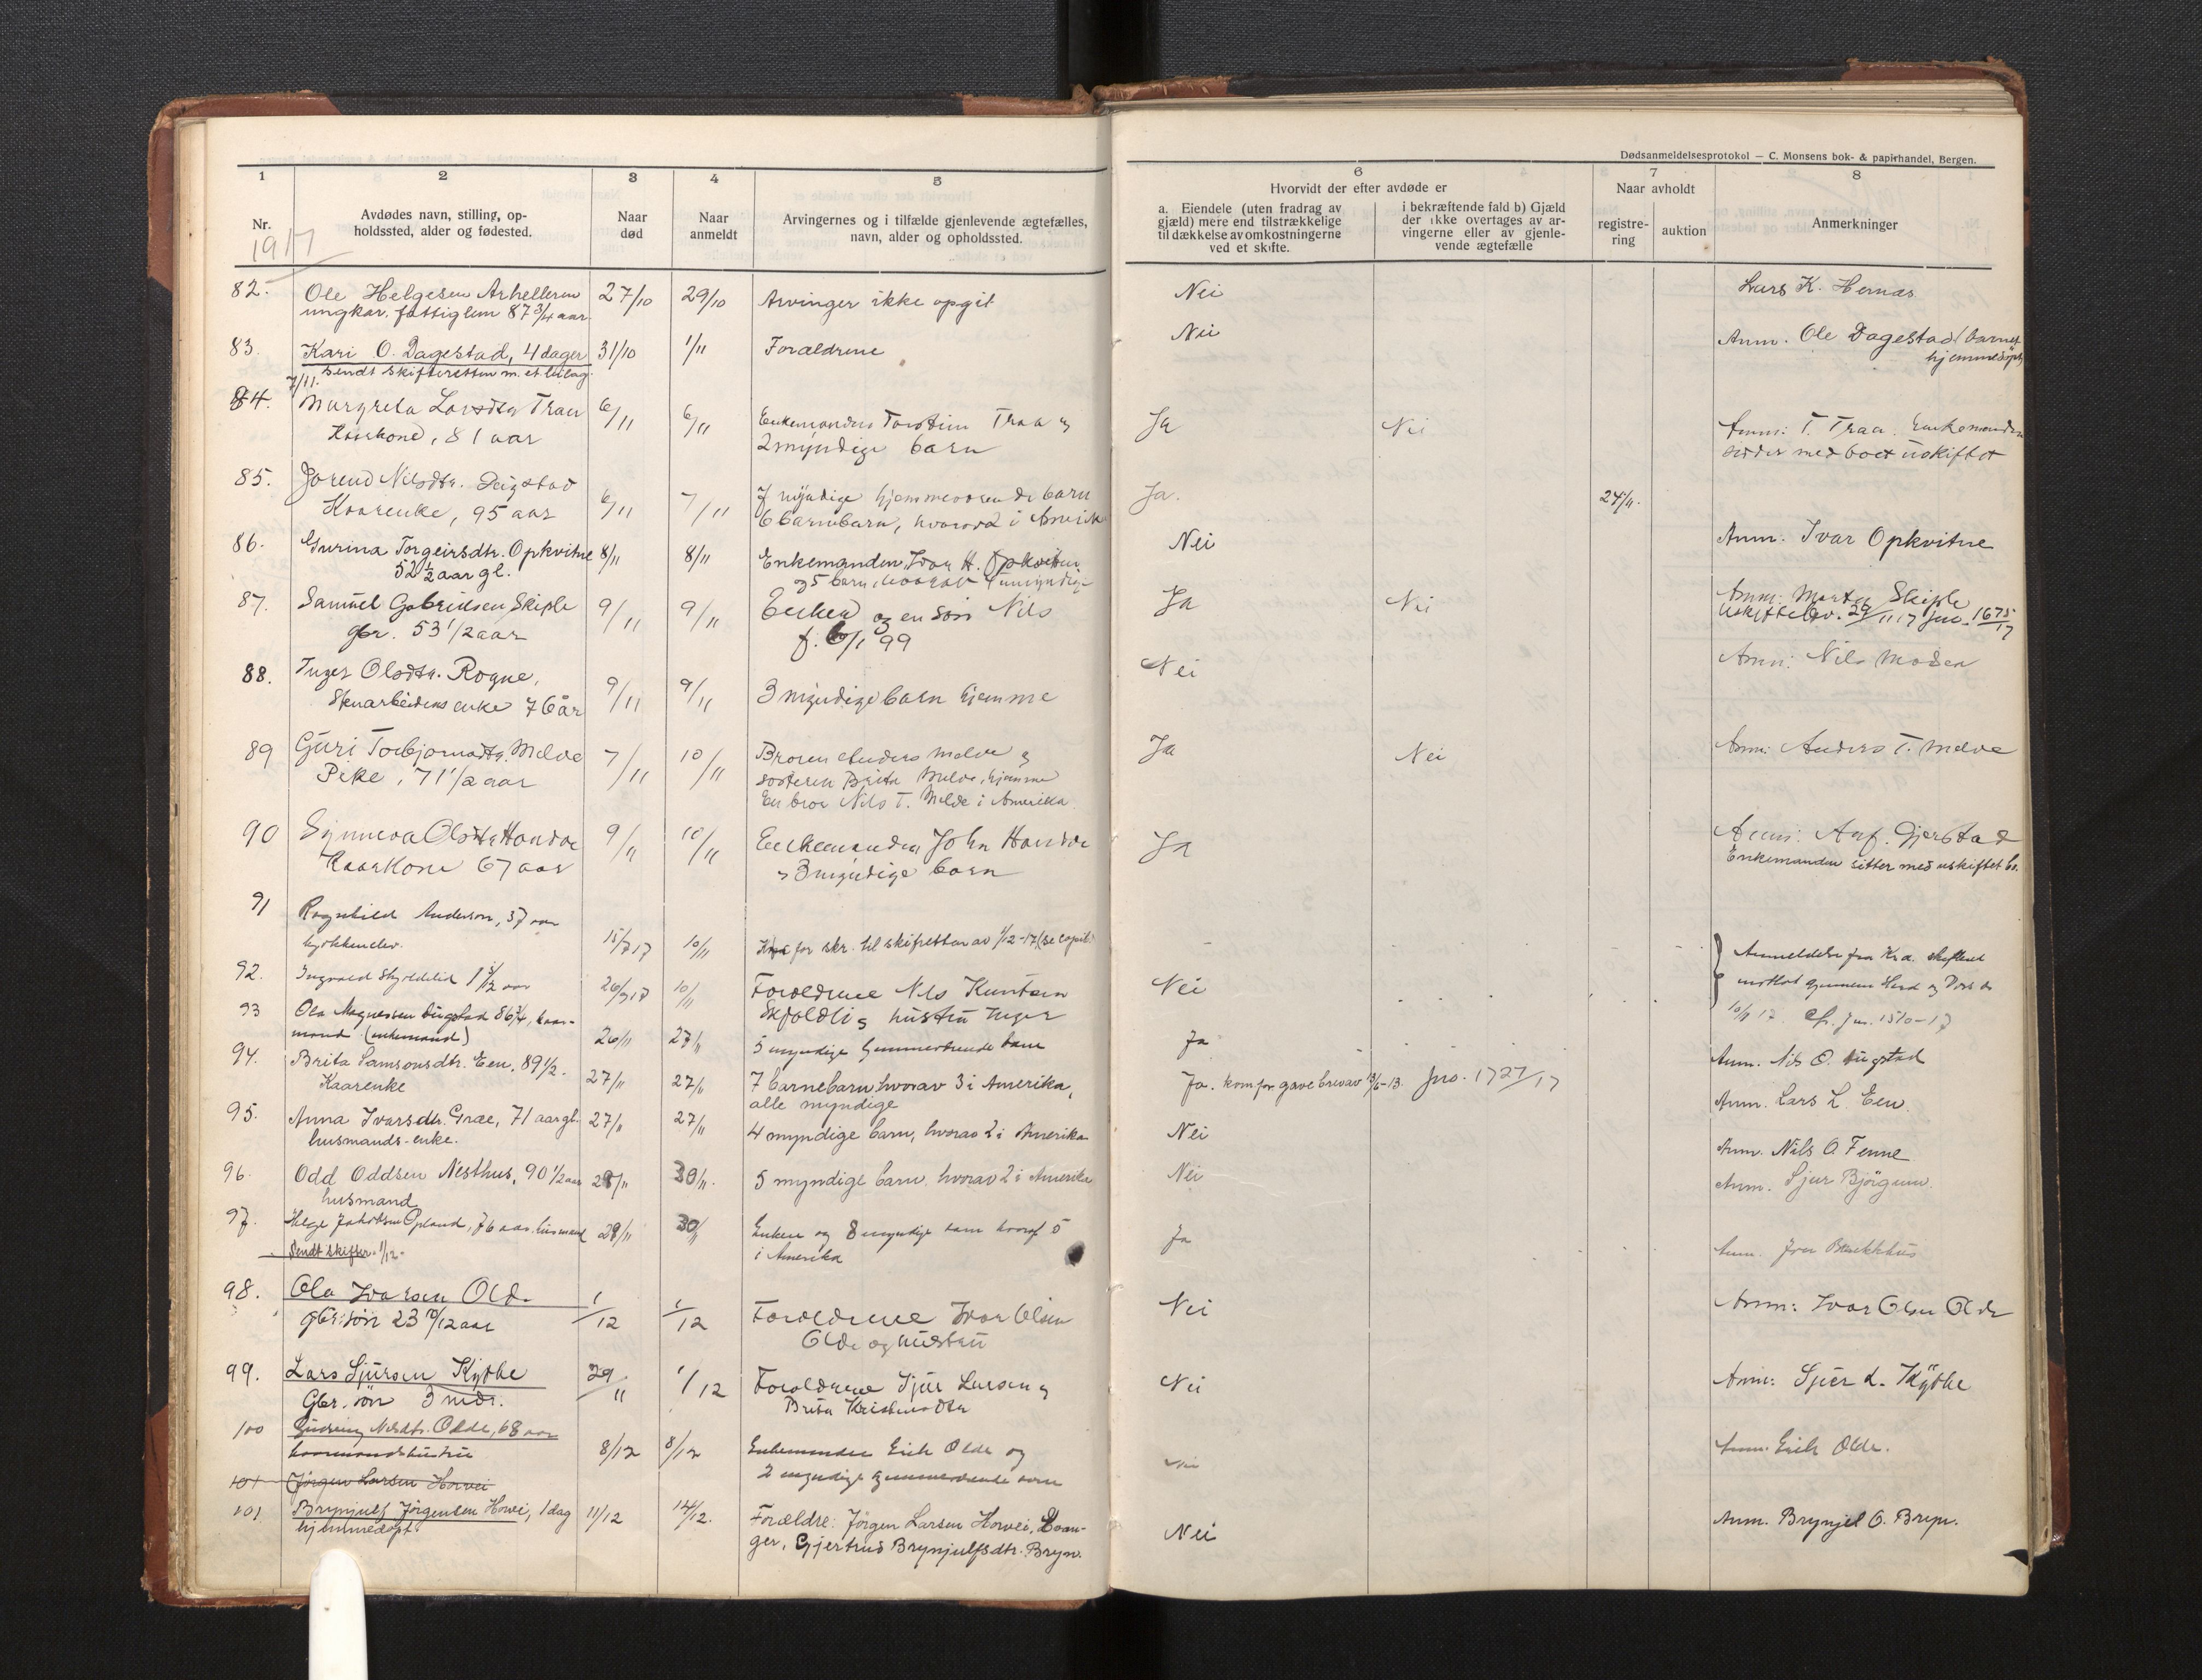 Dødsanmeldelsesprotokol — C. Monsens bok- & papirhandel, Bergen.
1 2 3 4 5 6 7 8
Nr. 1917
Avdødes navn, stilling, op-
holdssted, alder og fødested.
Naar
død
Naar
anmeldt
Arvingernes og i tilfælde gjenlevende ægtefælles,
navn, alder og opholdssted.
Hvorvidt der efter avdøde er
a. Eiendele (uten fradrag av
gjæld) mere end tilstrækkelige
til dækkelse av omkostningerne
ved et skifte.
i bekræftende fald b) Gjæld
der ikke overtages av ar-
vingerne eller av gjenle-
vende ægtefælle
Naar avholdt
registre-
ring
auktion
Anmerkninger
82. Ole Helgesen Arhelleren 27/10 29/10 Arvinger ikke opgit Nei Lars K. Hernæs
ungkar. fattiglem 87 3/4 aar.
83. Kari O. Dagestad, 4 dager 31/10 1/11 Forældrene Nei Anm. Ole Dagestad (barnet
hjemmedøpt
7/11. sendt skifteretten m. et bilag.
84. Margreta Larsdtr Traa 6/11 6/11 Enkemanden Torstein Traa og Ja Nei Anm: T. Traa. Enkemanden
Kaarkone, 81 aar 2 myndige barn sidder med boet uskiftet
85. Jorend Nilsdtr. Deigstad
Kaarenke, 95 aar 6/11 7/11 7 myndige hjemmeværende barn Ja. 24/11.
6 barnebarn, hvorav 2 i Amerika
86. Gurina Torgeirsdtr. Opkvitne 8/11 8/11 Enkemanden, Ivar H. Opkvitne Nei Anm. Ivar Opkvitne
52 1/2 aar gl. og 5 barn, hvorav 4 umyndige
87. Samuel Gabrielsen Skiple 9/11 9/11 Enken og en søn Nils Ja Nei Anm: Marta Skiple
gbr. 53 1/2 aar f. 6/1 99 Uskiftebev. 29/11 17 jnr. 1675/17
88. Inger Olsdtr. Rogne, Nei Anm: Nils Moden
enke 76 år 9/11 9/11 3 myndige barn hjemme
89 Guri Torbjørnsdtr. Melve 7/11 10/11 Broren Anders Melve og Ja Nei Anm: Anders T. Melve
Pike, 71 1/2 aar søsteren Brita Melve, hjemme
En bror Nils T. Melve i Amerika
90 Synneva Olsdtr Hondve 9/11 10/11 Enkemanden John Hondve Ja Anm: Anf. Gjerstad
Kaarkone 67 aar 3 myndige barn Enkemanden sitter med uskiftet bo.
91 Ragnhild Anderson, 37 aar
15/7 17 10/11 for skr. til skifretten av 1/12-17 (se copib.) Anmeldelse fra Kra. skifteret
92. Ingvald 1 5/12 aar 26/9 17 10/11 Forældrene Nils Knutsen Nei mottat gjennem
Skjoldli og hustru Inger 10/11 17. Cfr. jnr. 1510-17
93 Ola Magnessen Bugstad 86 3/4, kaar-
mand (enkemand) 26/11 27/11 5 myndige hjemmeværende barn Ja Anm. Nils O. Bugstad
94. Brita Samsonsdtr. Een, 89 1/2.
Kaarenke 27/11 27/11 7 barnebarn hvorav 3 i Amerika, Ja. kom for gavebrev av 13/6-13. jno. 1727/17 Anm. Lars L. Een.
alle myndige
95. Anna Ivarsdtr. Græe, 71 aar gl. 27/11 27/11 4 myndige barn, hvorav 2 i Amerika Nei Anm. Nils O. Fenne
husmands-enke.
96. Odd Oddsen Nesthus, 90 1/2 aar 28/11 30/11. 5 myndige barn. hvorav 2 i Amerika Nei Anm. Sjur Bjørgum.
husmand
97. Helge Jakobsen Opland, 76 aar. husmand 28/11 30/11 Enken og 8 myndige barn hvoraf 5 Ja Anm. Iver
Sendt skifter. 1/12. i Amerika
98. Ola Ivarsen Olde 1/12 1/12 Forældrene Ivar Olsen Nei Anm: Ivar Olsen Olde
gbr. søn 23 aar Olde og hustru
99. Lars Sjursen Kythe 29/11 1/12 Forældrene Sjur Larsen og Nei Anm: Sjur L. Kythe
Gbr. søn 3 mdr. Brita
100 Nilsdtr. Olde, 68 aar
kaarmandshustru 8/12 8/12 Enkemanden Erik Olde og Nei Anm. Erik Olde.
2 myndige hjemmeværende barn
101 Jørgen Larsen Horvei
101 Brynjulf Jørgensen Horvei, 1 dag 11/12 14/12. Forældre: Jørgen Larsen Horvei, Evan- Nei Anm. Brynjel O. Bryn.
hjemmedøpt. ger, Gjertrud Brynjulfsdtr. Bryn.